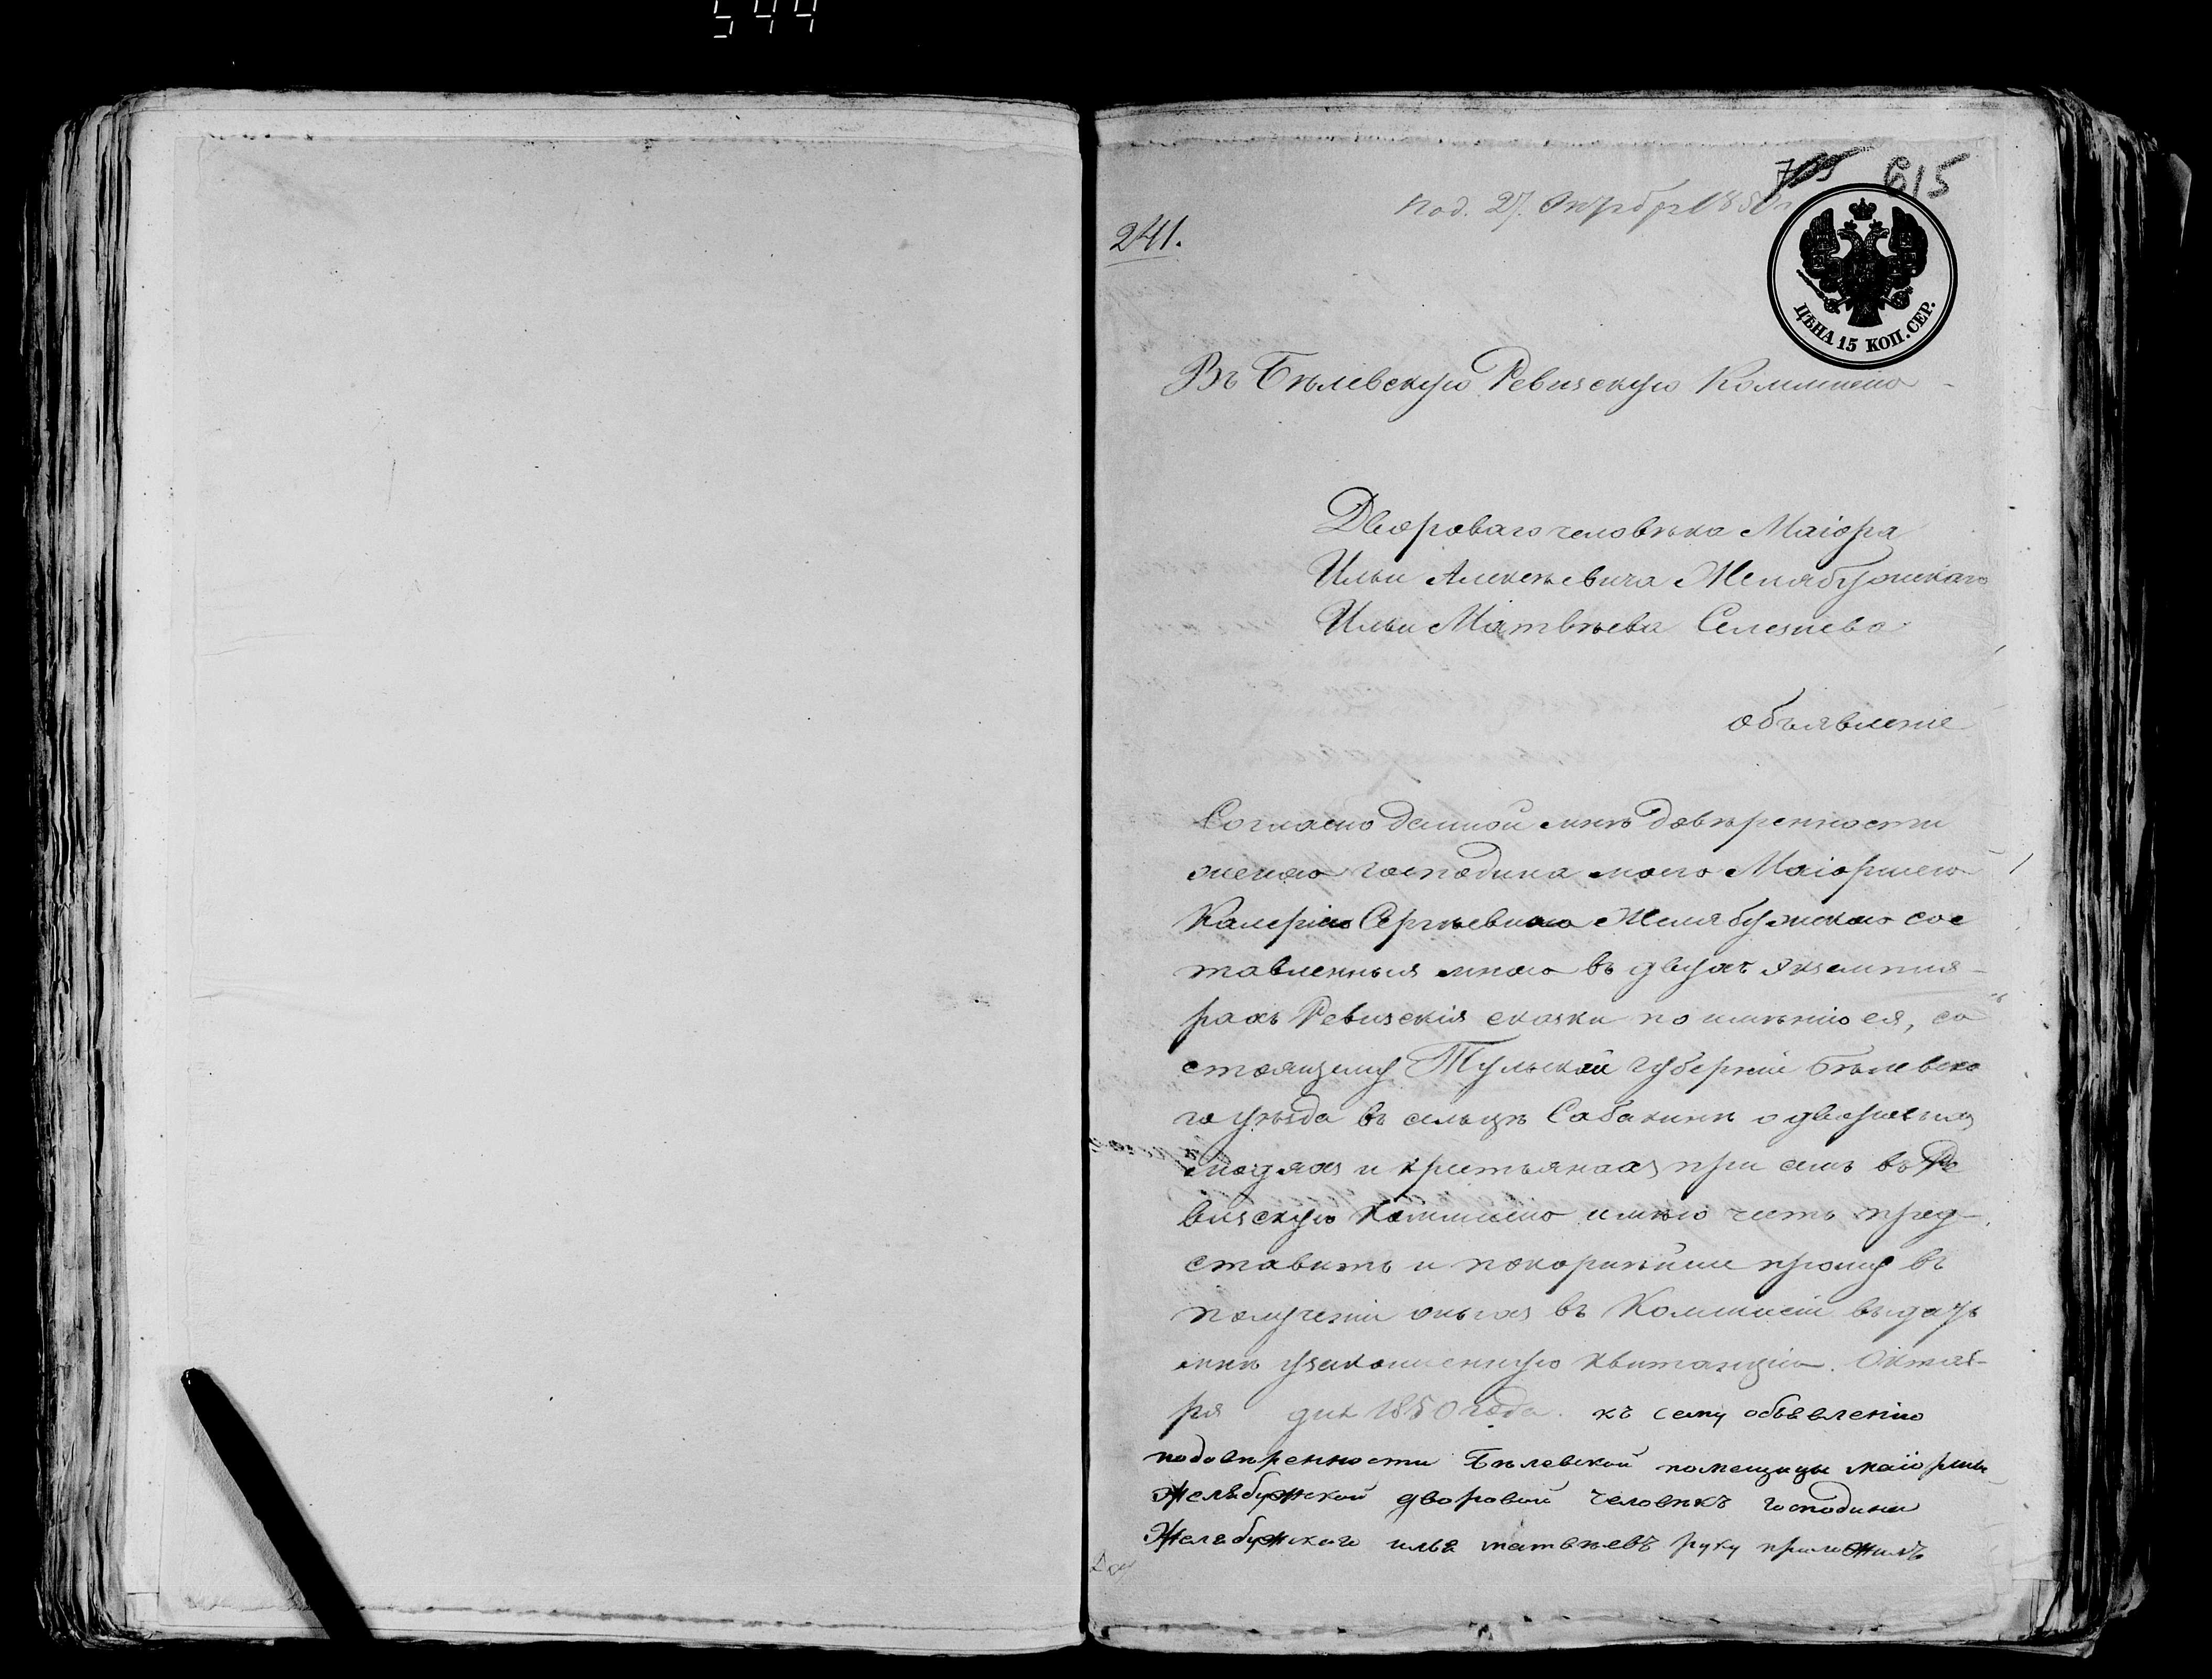 544
705 615
Под. 27. Октября 1850 г.
241.
ЦѢНА 15 КОП. СЕР.
Въ Бѣлевскую Ревизскую Коммисию
Двороваго человѣка Маіора
Ильи Алексѣевича Желябужскаго
Ильи Матвѣева Селезнева
объявленіе
Согласно данной мнѣ довѣренности
женою господина моего Маіоршею
Калеріею Сергѣевною Желябужскою сос
тавленныя мною въ двухъ экземпля-
рахъ Ревизскія сказки по имѣнію ея, со
стоящему Тульской губерніи Бѣлевска
го уѣзда въ сельцѣ Сабакинѣ о дворовыхъ
людяхъ и крестьянахъ при семъ въ Ре
визскую Коммисію имѣю честь пред-
ставить и покорнѣйше прошу въ
полученіи оныхъ въ Коммисіи выдать
мнѣ узаконенную квитанцію. Октяб-
ря дня 1850 года. къ сему объявленію
подовѣренности Бѣлевской помещицы маіорши
Желябужской дворовой человѣкъ господина
Желябужскаго илья матвѣевъ руку приложилъ